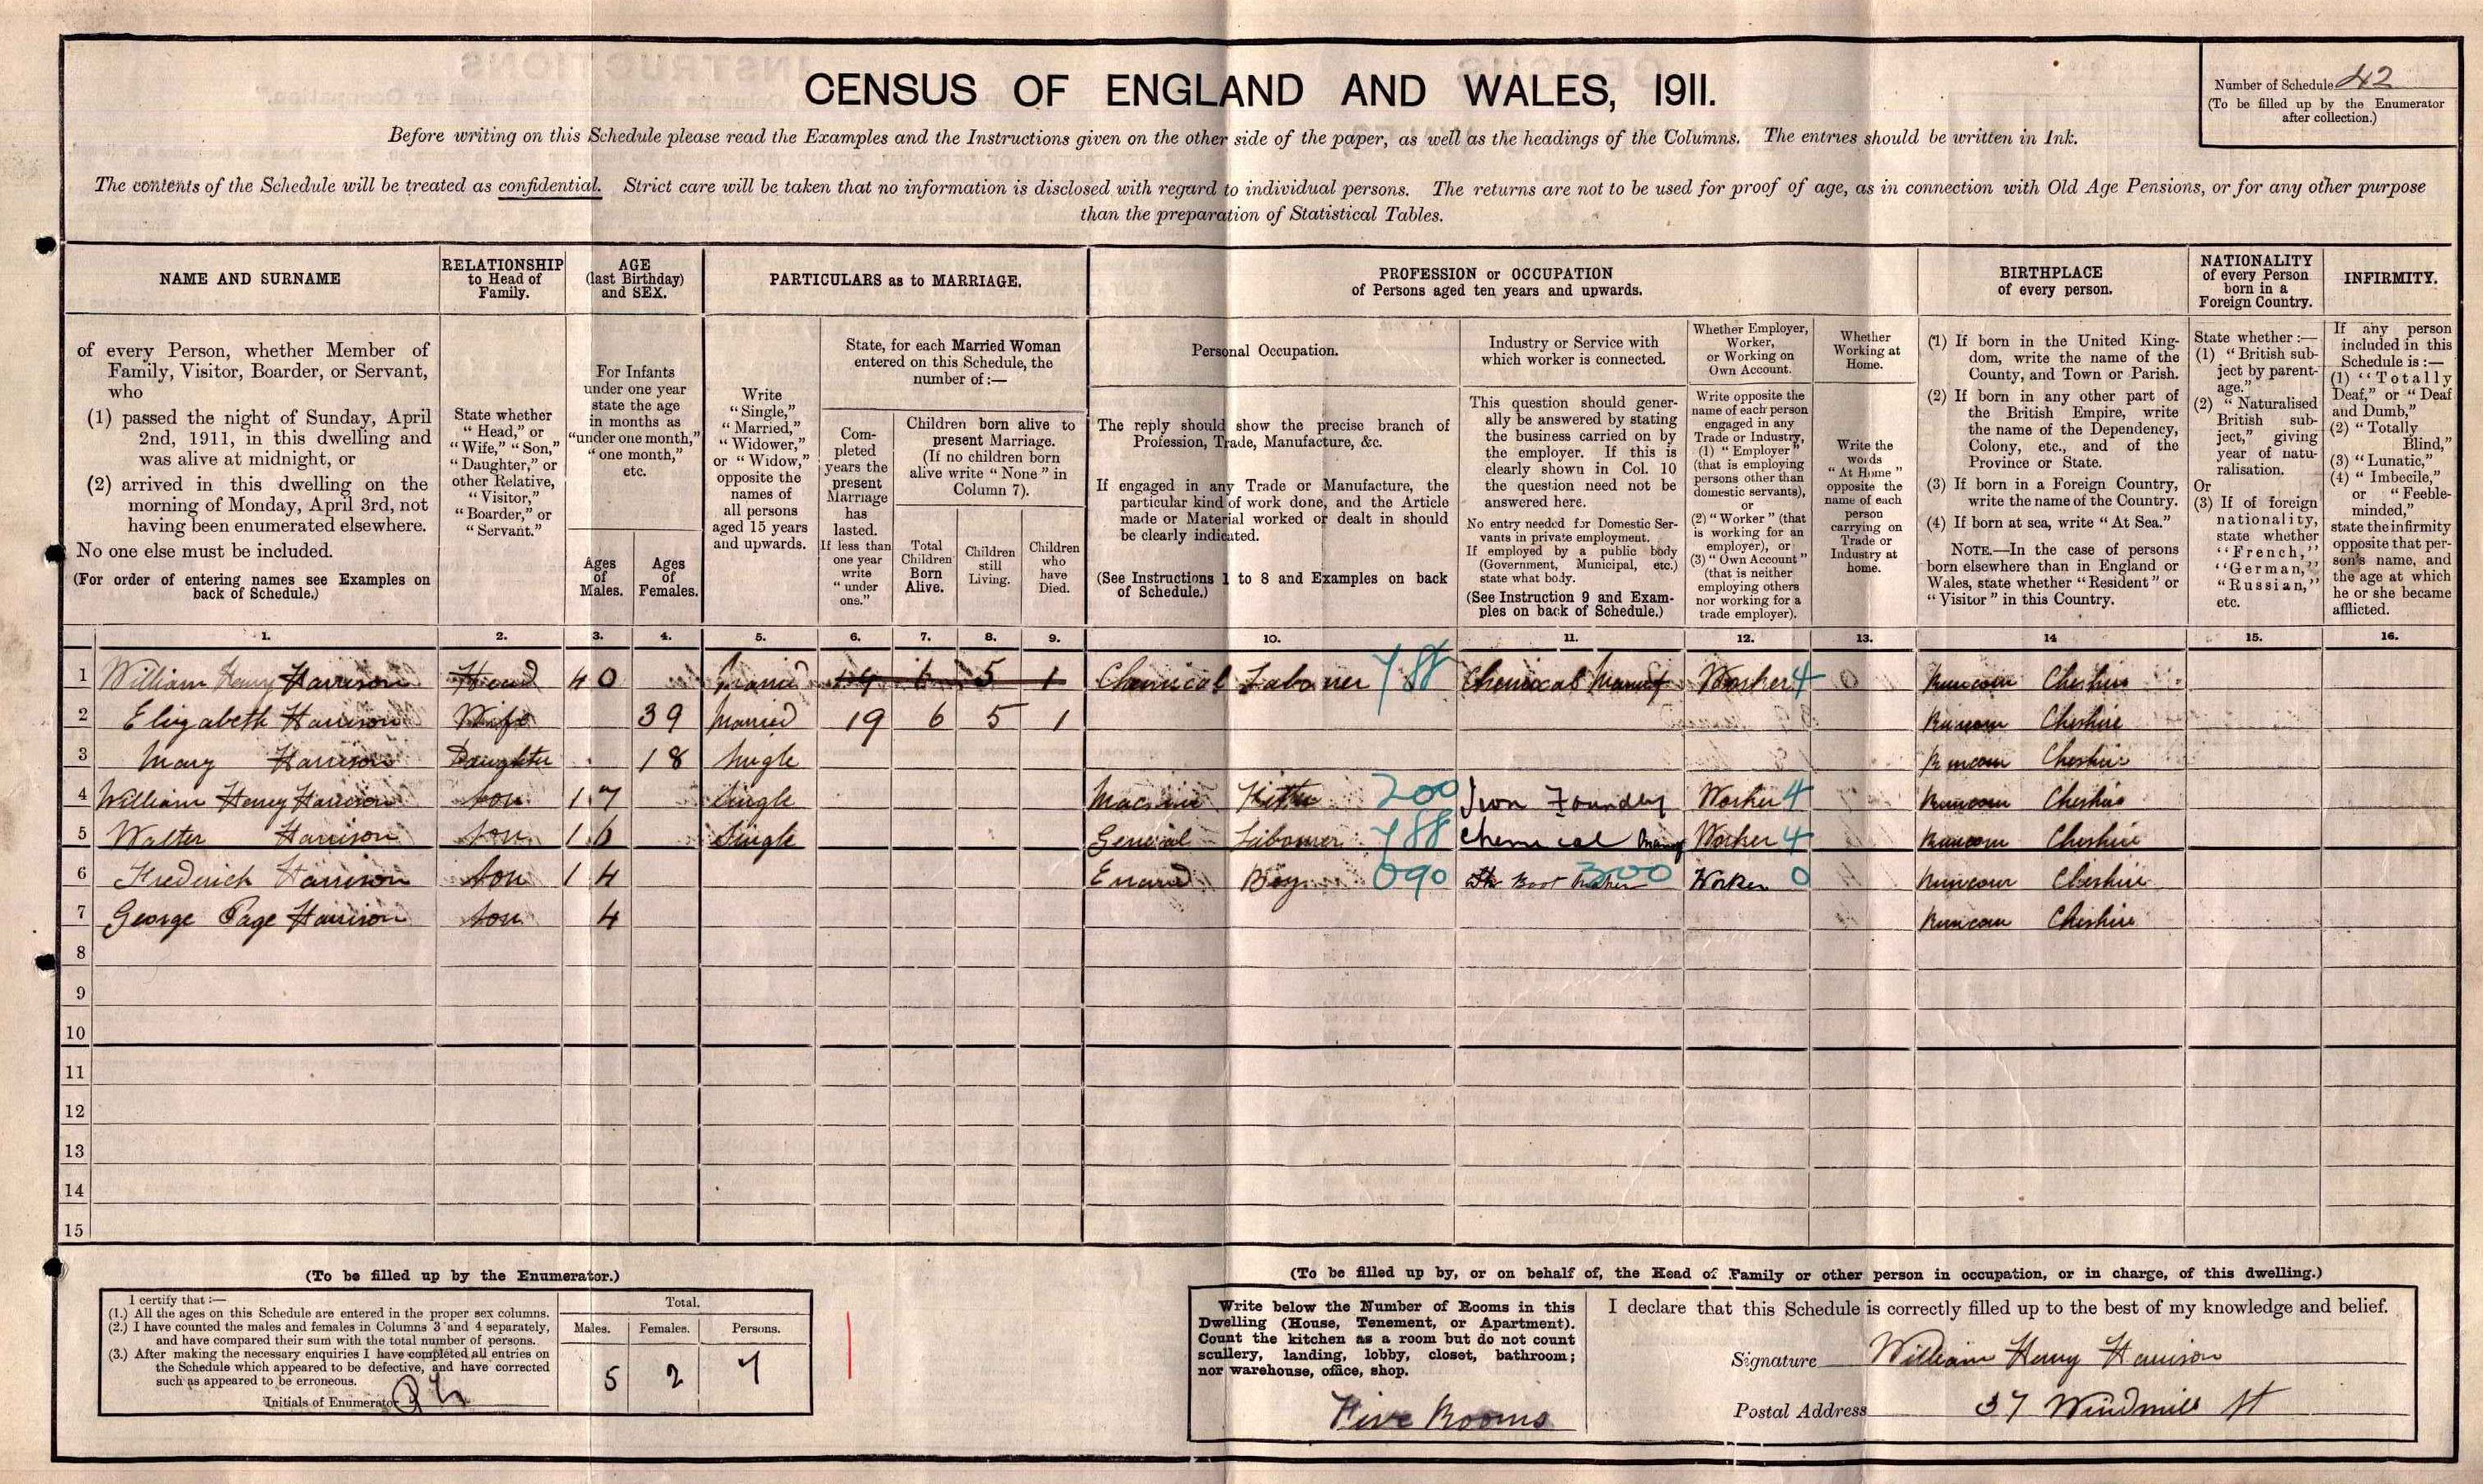 CENSUS OF ENGLAND AND WALES, 1911.
Number of Schedule 42
(To be filled up by the Enumerator
after collection.)
Before writing on this Schedule please read the Examples and the Instructions given on the other side of the paper, as well as the headings of the Columns. The entries should be written in Ink.
The contents of the Schedule will be treated as confidential. Strict care will be taken that no information is disclosed with regard to individual persons. The returns are not to be used for proof of age, as in connection with Old Age Pensions, or for any other purpose
than the preparation of Statistical Tables.
NAME AND SURNAME
of every Person, whether Member of
Family, Visitor, Boarder, or Servant,
who
(1) passed the night of Sunday, April
2nd, 1911, in this dwelling and
was alive at midnight, or
(2) arrived in this dwelling on the
morning of Monday, April 3rd, not
having been enumerated elsewhere.
No one else must be included.
(For order of entering names see Examples on
back of Schedule.)
RELATIONSHIP
to Head of
Family.
State whether
"Head," or
"Wife," "Son,"
"Daughter," or
other Relative,
"Visitor,"
"Boarder," or
"Servant."
AGE
(last Birthday)
and SEX.
For Infants
under one year
state the age
in months as
"under one month,"
"one month,"
etc.
Ages
of
Males.
Ages
of
Females.
PARTICULARS as to MARRIAGE.
Write
"Single,"
"Married,"
"Widower,"
or "Widow,"
opposite the
names of
all persons
aged 15 years
and upwards.
State, for each Married Woman
entered on this Schedule, the
number of:—
Com-
pleted
years the
present
Marriage
has
lasted.
If less than
one year
write
"under
one."
Children born alive to
present Marriage.
(If no children born
alive write "None" in
Column 7).
Total
Children
Born
Alive.
Children
still
Living.
Children
who
have
Died.
PROFESSION or OCCUPATION
of Persons aged ten years and upwards.
Personal Occupation.
The reply should show the precise branch of
Profession, Trade, Manufacture, &c.
If engaged in any Trade or Manufacture, the
particular kind of work done, and the Article
made or Material worked or dealt in should
be clearly indicated.
(See Instructions 1 to 8 and Examples on back
of Schedule.)
Industry or Service with
which worker is connected.
This question should gener-
ally be answered by stating
the business carried on by
the employer. If this is
clearly shown in Col. 10
the question need not be
answered here.
No entry needed for Domestic Ser-
vants in private employment.
If employed by a public body
(Government, Municipal, etc.)
state what body.
(See Instruction 9 and Exam-
ples on back of Schedule.)
Whether Employer,
Worker,
or Working on
Own Account.
Write opposite the
name of each person
engaged in any
Trade or Industry,
(1) "Employer"
(that is employing
persons other than
domestic servants),
or
(2) "Worker" (that
is working for an
employer), or
(3) "Own Account"
(that is neither
employing others
nor working for a
trade employer).
Whether
Working at
Home.
Write the
words
"At Home"
opposite the
name of each
person
carrying on
Trade or
Industry at
home.
BIRTHPLACE
of every person.
(1) If born in the United King-
dom, write the name of the
County, and Town or Parish.
(2) If born in any other part of
the British Empire, write
the name of the Dependency,
Colony, etc., and of the
Province or State.
(3) If born in a Foreign Country,
write the name of the Country.
(4) If born at sea, write "At Sea."
NOTE.—In the case of persons
born elsewhere than in England or
Wales, state whether "Resident" or
"Visitor" in this Country.
NATIONALITY
of every Person
born in a
Foreign Country.
State whether:—
(1) "British sub-
ject by parent-
age."
(2) "Naturalised
British sub-
ject," giving
year of natu-
ralisation.
Or
(3) If of foreign
nationality,
state whether
"French,"
"German,"
"Russian,"
etc.
INFIRMITY.
If any person
included in this
Schedule is:—
(1) "Totally
Deaf," or "Deaf
and Dumb,"
(2) "Totally
Blind,"
(3) "Lunatic,"
(4) "Imbecile,"
or "Feeble-
minded,"
state the infirmity
opposite that per-
son's name, and
the age at which
he or she became
afflicted.
1. 2. 3. 4. 5. 6. 7. 8. 9. 10. 11. 12. 13. 14 15. 16.
1 William Henry Harrison Head 40 Married 19 6 5 1 Chemical Labourer 788 Chemical Manuf Worker 4 0 Runcorn Cheshire
2 Elizabeth Harrison Wife 39 Married 19 6 5 1 Runcorn Cheshire
3 Mary Harrison Daughter 18 Single Runcorn Cheshire
4 William Henry Harrison Son 17 Single Machine Fitter 200 Iron Foundry Worker 4 Runcorn Cheshire
5 Walter Harrison Son 16 Single General Labourer 788 Chemical Manuf Worker 4 Runcorn Cheshire
6 Frederick Harrison Son 14 Errand Boy 090 Boot Maker 300 Worker 0 Runcorn Cheshire
7 George Page Harrison Son 4 Runcorn Cheshire
8
9
10
11
12
13
14
15
(To be filled up by the Enumerator.)
I certify that:—
(1.) All the ages on this Schedule are entered in the proper sex columns.
(2.) I have counted the males and females in Columns 3 and 4 separately,
and have compared their sum with the total number of persons.
(3.) After making the necessary enquiries I have completed all entries on
the Schedule which appeared to be defective, and have corrected
such as appeared to be erroneous.
Initials of Enumerator
Total.
Males. Females. Persons.
5 2 7
(To be filled up by, or on behalf of, the Head of Family or other person in occupation, or in charge, of this dwelling.)
Write below the Number of Rooms in this
Dwelling (House, Tenement, or Apartment).
Count the kitchen as a room but do not count
scullery, landing, lobby, closet, bathroom;
nor warehouse, office, shop.
Five Rooms
I declare that this Schedule is correctly filled up to the best of my knowledge and belief.
Signature William Henry Harrison
Postal Address 37 Windmill St